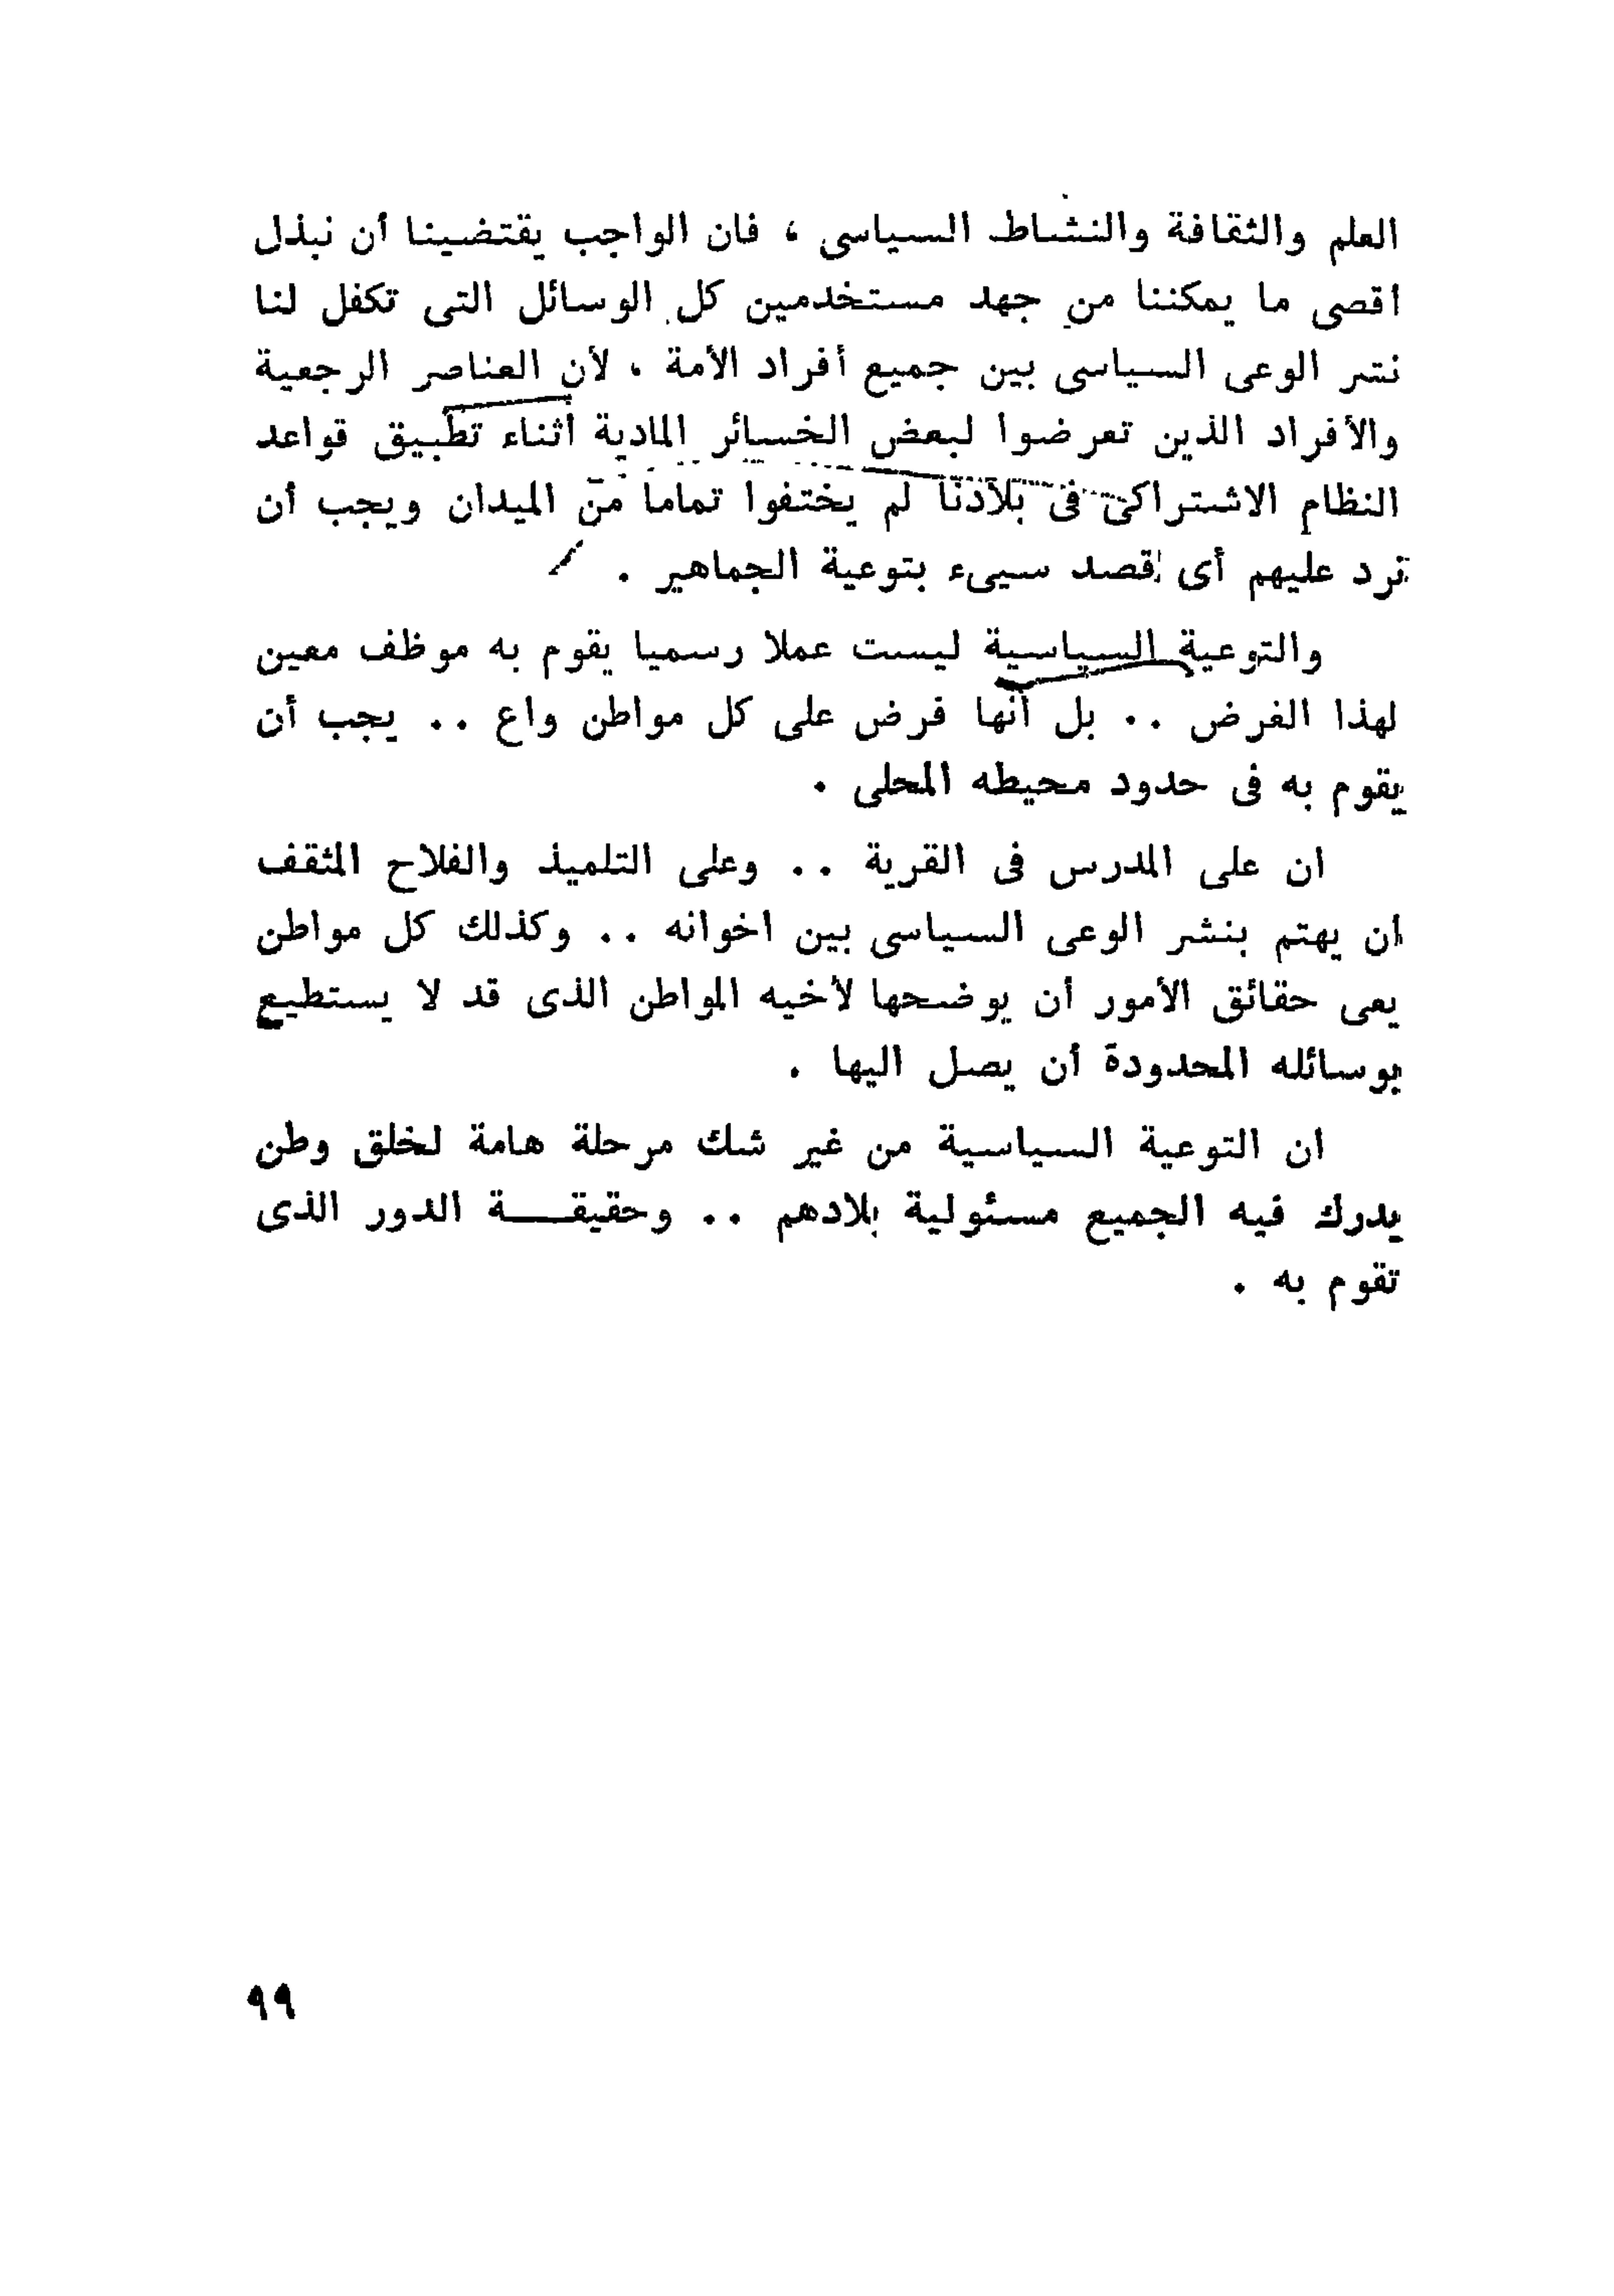 العلم والثقافة والنشاط السياسى ، فان الواجب يقتضينا أن نبذل
اقصى ما يمكننا من جهد مستخدمين كل الوسائل التى تكفل لنا
نشر الوعى السياسى بين جميع أفراد الأمة ، لأن العناصر الرجعية
والأفراد الذين تعرضوا لبعض الخسائر المادية أثناء تطبيق قواعد
النظام الاشتراكى فى بلادنا لم يختفوا تماما من الميدان ويجب أن
نرد عليهم أى قصد سيىء بتوعية الجماهير .
والتوعية السياسية ليست عملا رسميا يقوم به موظف معين
لهذا الغرض .. بل أنها فرض على كل مواطن واع .. يجب أن
يقوم به فى حدود محيطه المحلى .
ان على المدرس فى القرية .. وعلى التلميذ والفلاح المثقف
ان يهتم بنشر الوعى السياسى بين اخوانه .. وكذلك كل مواطن
يعى حقائق الأمور أن يوضحها لأخيه المواطن الذى قد لا يستطيع
بوسائله المحدودة أن يصل اليها .
ان التوعية السياسية من غير شك مرحلة هامة لخلق وطن
يدرك فيه الجميع مسئولية بلادهم .. وحقيقـــة الدور الذى
تقوم به .
٩٩